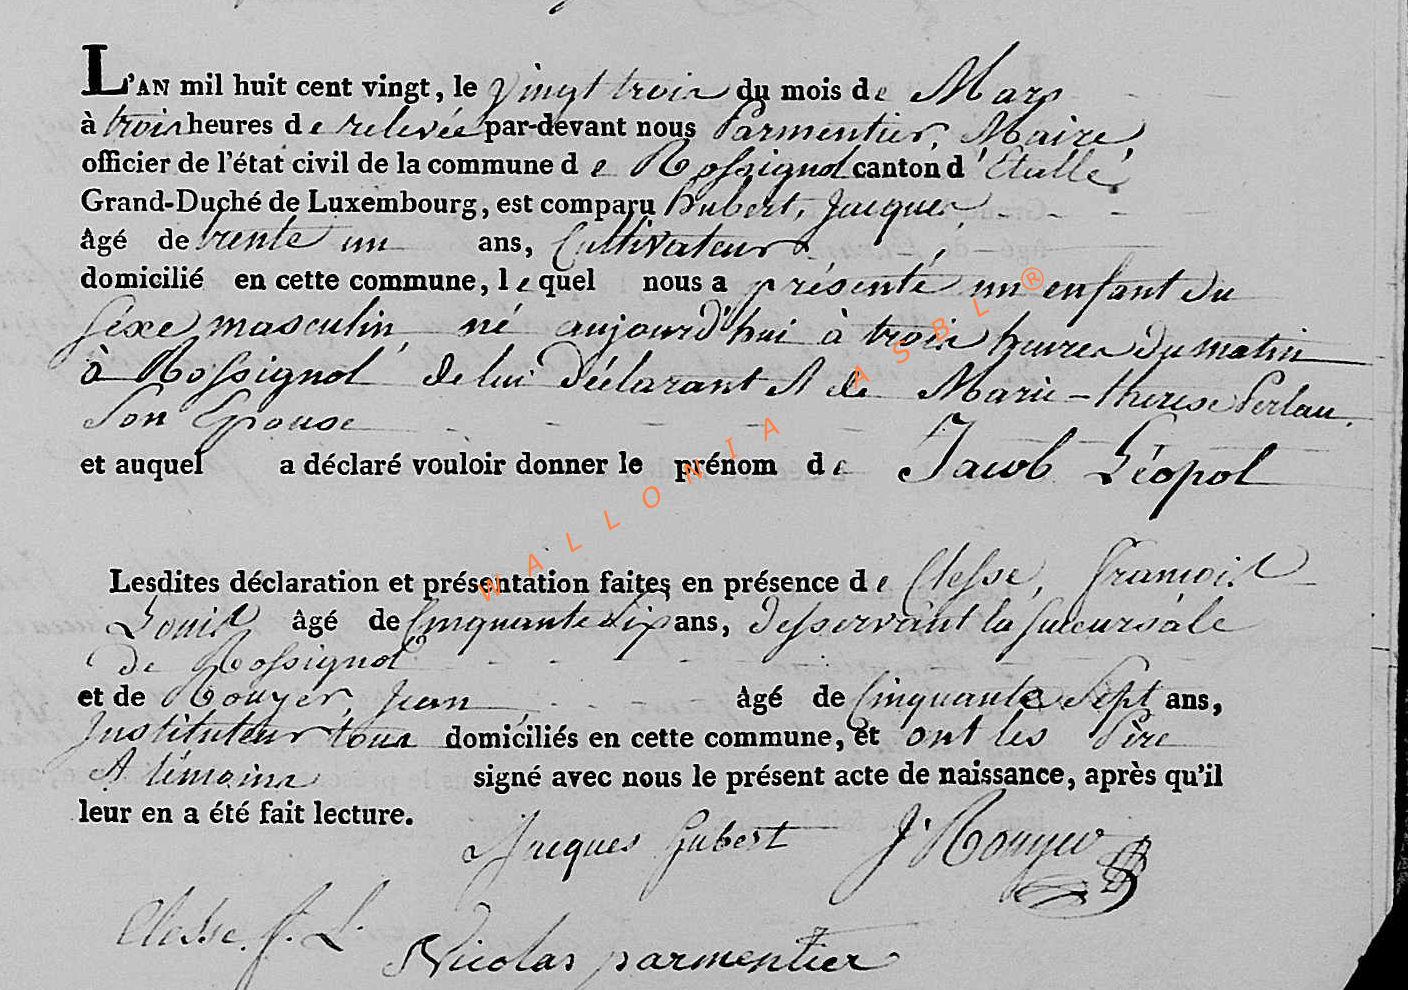 L'AN mil huit cent vingt, le vingt trois du mois de Mars
à trois heures de relevée par-devant nous Parmentier, Maire,
officier de l'état civil de la commune de Rossignol canton d'Etalle,
Grand-Duché de Luxembourg, est comparu hubert, Jacques
âgé de trente un ans, Cultivateur
domicilié en cette commune, lequel nous a présenté un enfant du
sexe masculin, né aujourd'hui à trois heures du matin
à Rossignol de lui déclarant et de Marie-therese Perlau,
Son Epouse
et auquel a déclaré vouloir donner le prénom de Jacob Léopol
Lesdites déclaration et présentation faites en présence de Clesse, François
Louis âgé de Cinquante six ans, desservant la succursale
de Rossignol
et de Rouyer, Jean âgé de Cinquante Sept ans,
Instituteur tous domiciliés en cette commune, et ont les Père
et témoins signé avec nous le présent acte de naissance, après qu'il
leur en a été fait lecture.
Jacques hubert J Rouyer
Clesse. f. L.
Nicolas parmentier
WALLONIA ASBL ®